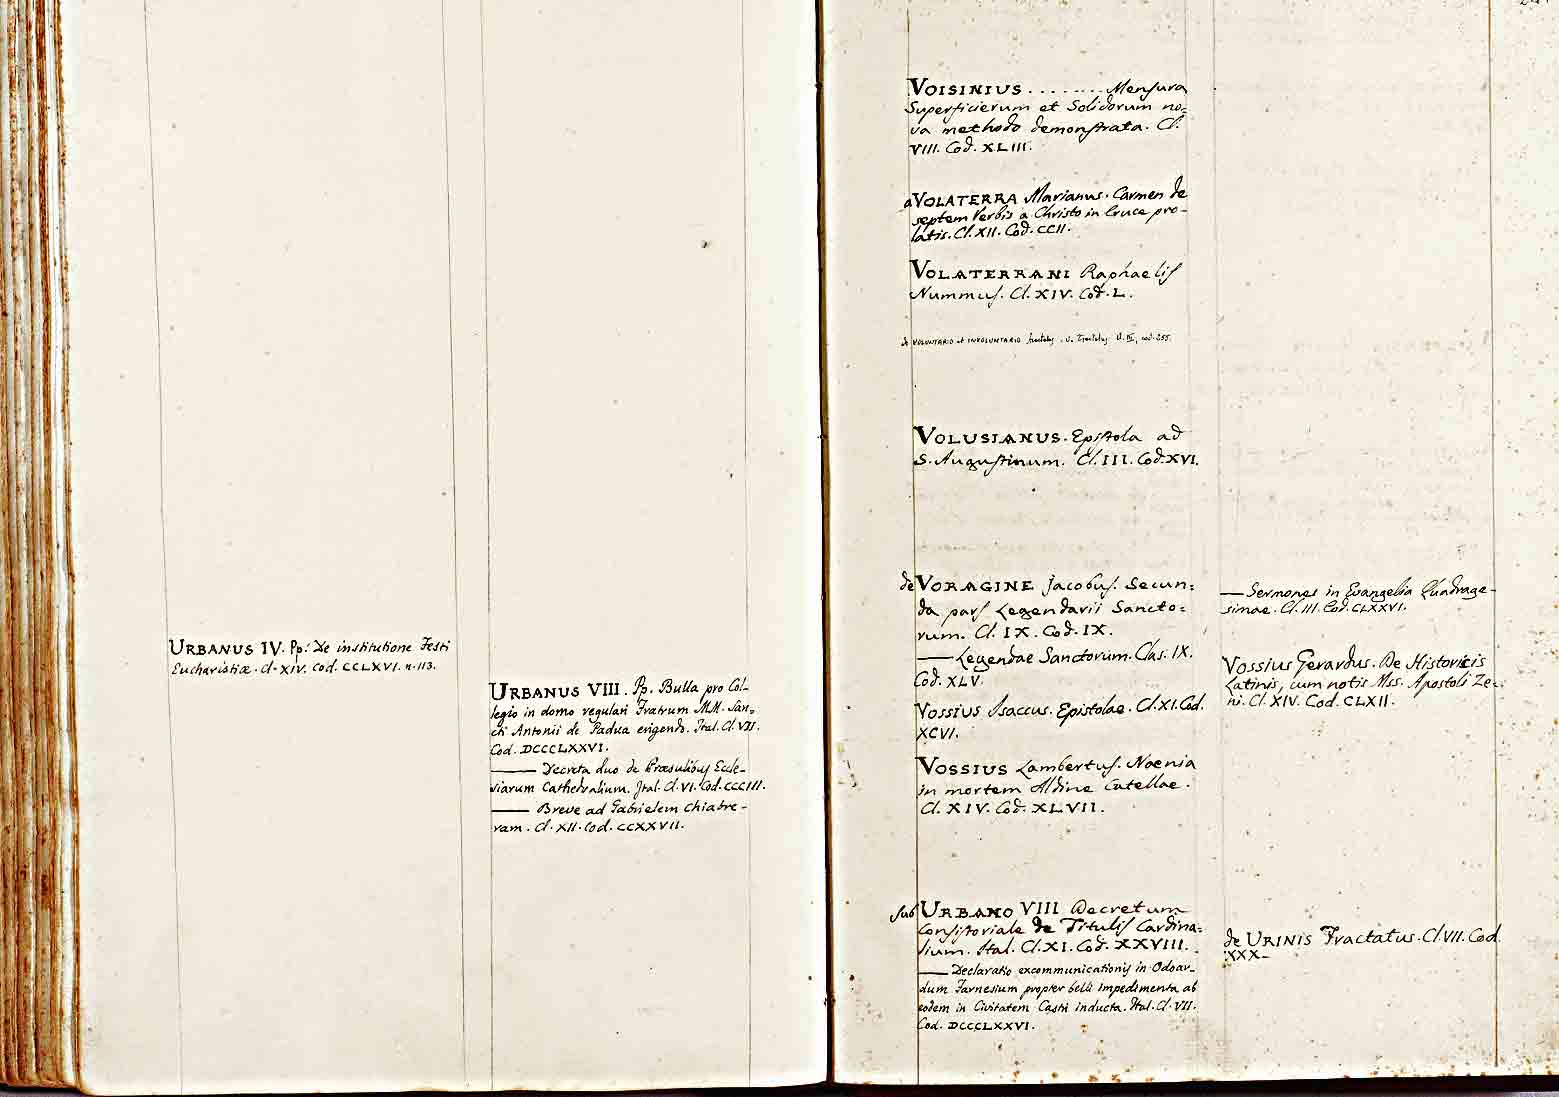 URBANUS IV. Pp. De institutione Festi
Eucharistiæ. Cl. XIV. Cod. CCLXVI. n. 113.
URBANUS VIII. Pp. Bulla pro Col-
legio in domo regulari Fratrum M.M. San-
cti Antonii de Padua erigendo. Ital. Cl. VII.
Cod. DCCCLXXVI.
—— Decreta duo de Præsulibus Eccle-
siarum Cathedralium. Ital. Cl. VI. Cod. CCCIII.
—— Breve ad Gabrielem Chiabre-
ram. Cl. XII. Cod. CCXXVII.
VOISINIUS ........ Mensura
Superficierum et Solidorum no=
va methodo demonstrata. Cl.
VIII. Cod. XLIII.
a VOLATERRA Marianus. Carmen de
septem Verbis a Christo in Cruce pro-
latis. Cl. XII. Cod. CCII.
VOLATERRANI Raphaelis
Nummus. Cl. XIV. Cod. L.
de VOLUNTARIO et INVOLUNTARIO tractatus. v. Tractatus Cl. III, cod. 255.
VOLUSIANUS. Epistola ad
S. Augustinum. Cl. III. Cod. XVI.
de VORAGINE Jacobus. Secun=
da pars Legendarii Sancto=
rum. Cl. IX. Cod. IX.
—— Legendae Sanctorum. Clas. IX.
Cod. XLV.
VOSSIUS Isaccus. Epistolae. Cl. XI. Cod.
XCVI.
VOSSIUS Lambertus. Naenia
in mortem Aldine Catellae.
Cl. XIV. Cod. XLVII.
sub URBANO VIII Decretum
Consistoriale de Titulis Cardina=
lium. Ital. Cl. XI. Cod. XXVIII.
—— Declaratio excommunicationis in Odoar-
dum Farnesium propter belli impedimenta ab
eodem in Civitatem Castri inducta. Ital. Cl. VII.
Cod. DCCCLXXVI.
—— Sermones in Evangelia Quadrage-
simae. Cl. III. Cod. CLXXVI.
VOSSIUS Gerardus. De Historicis
Latinis, cum notis Mss. Apostoli Ze-
ni. Cl. XIV. Cod. CLXII.
de URINIS Tractatus. Cl. VII. Cod.
XXX.